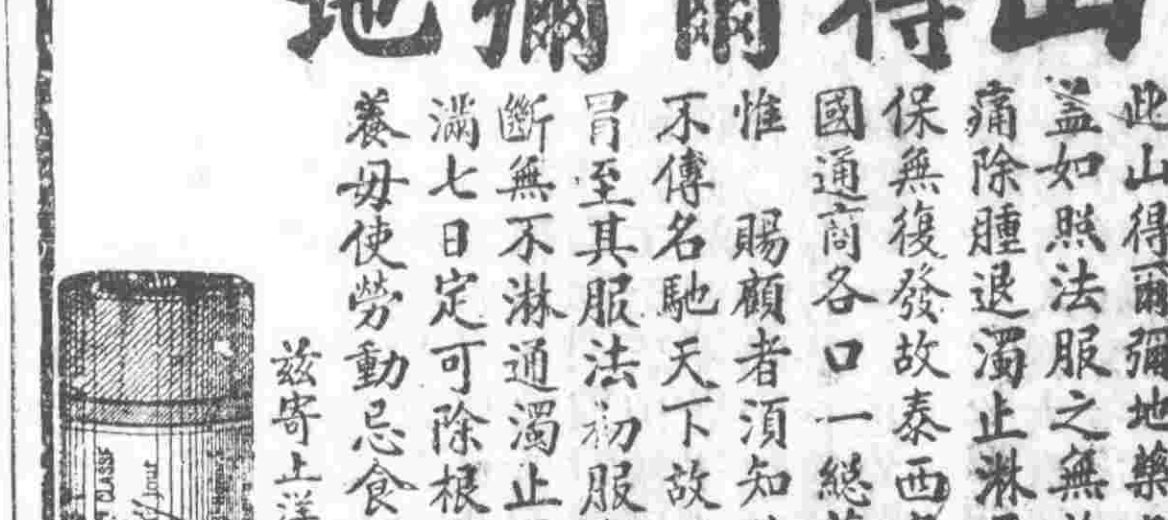 山得爾彌地
此山得爾彌地藥
蓋如照法服之無
痛除腫退濁止淋
保無復發故泰西
國通商各口一総
惟 賜顧者須知
不傳名馳天下故
冒至其服法初服
斷無不淋通濁止
滿七日定可除根
養毋使勞動忌食
茲寄上洋
CLASS